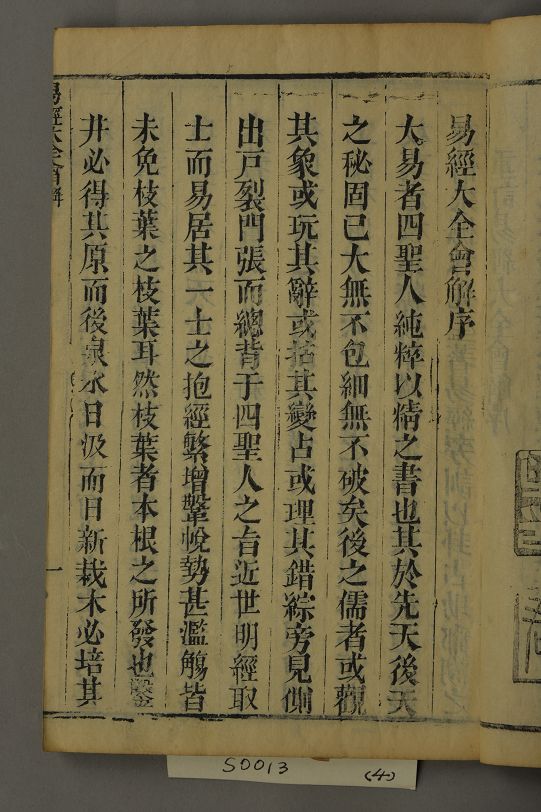 易經大全會解序
大易者四聖人純粹以精之書也其於先天後天
之秘固已大無不包細無不破矣後之儒者或觀
其象或玩其辭或括其變占或理其錯綜旁見側
出戶裂門張而總背于四聖人之旨近世明經取
士而易居其一士之抱經繁增鞶帨勢甚濫觴皆
未免枝葉之枝葉耳然枝葉者本根之所發也鑿
井必得其原而後泉水日汲而日新栽木必培其
易經大全會解
一
S0013
(4)